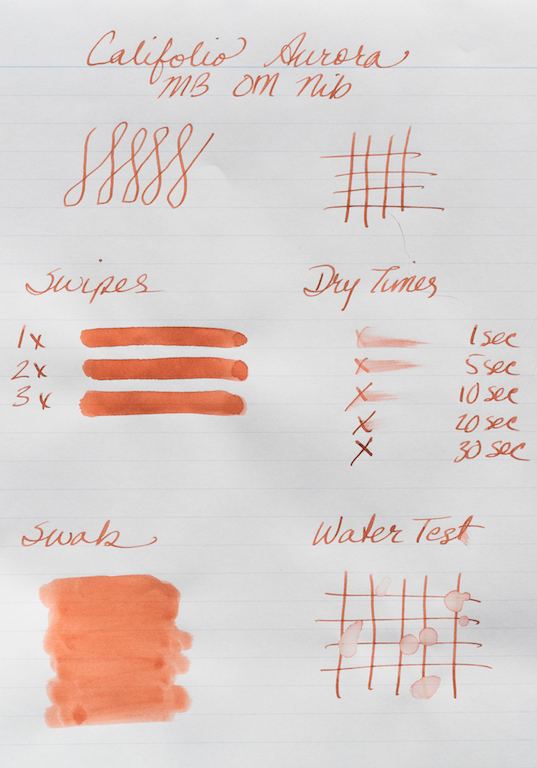 Califolio Aurora
MB OM Nib
Swipes
1x
2x
3x
Dry Times
x 1 sec
x 5 sec
x 10 sec
x 20 sec
x 30 sec
Swab
Water Test